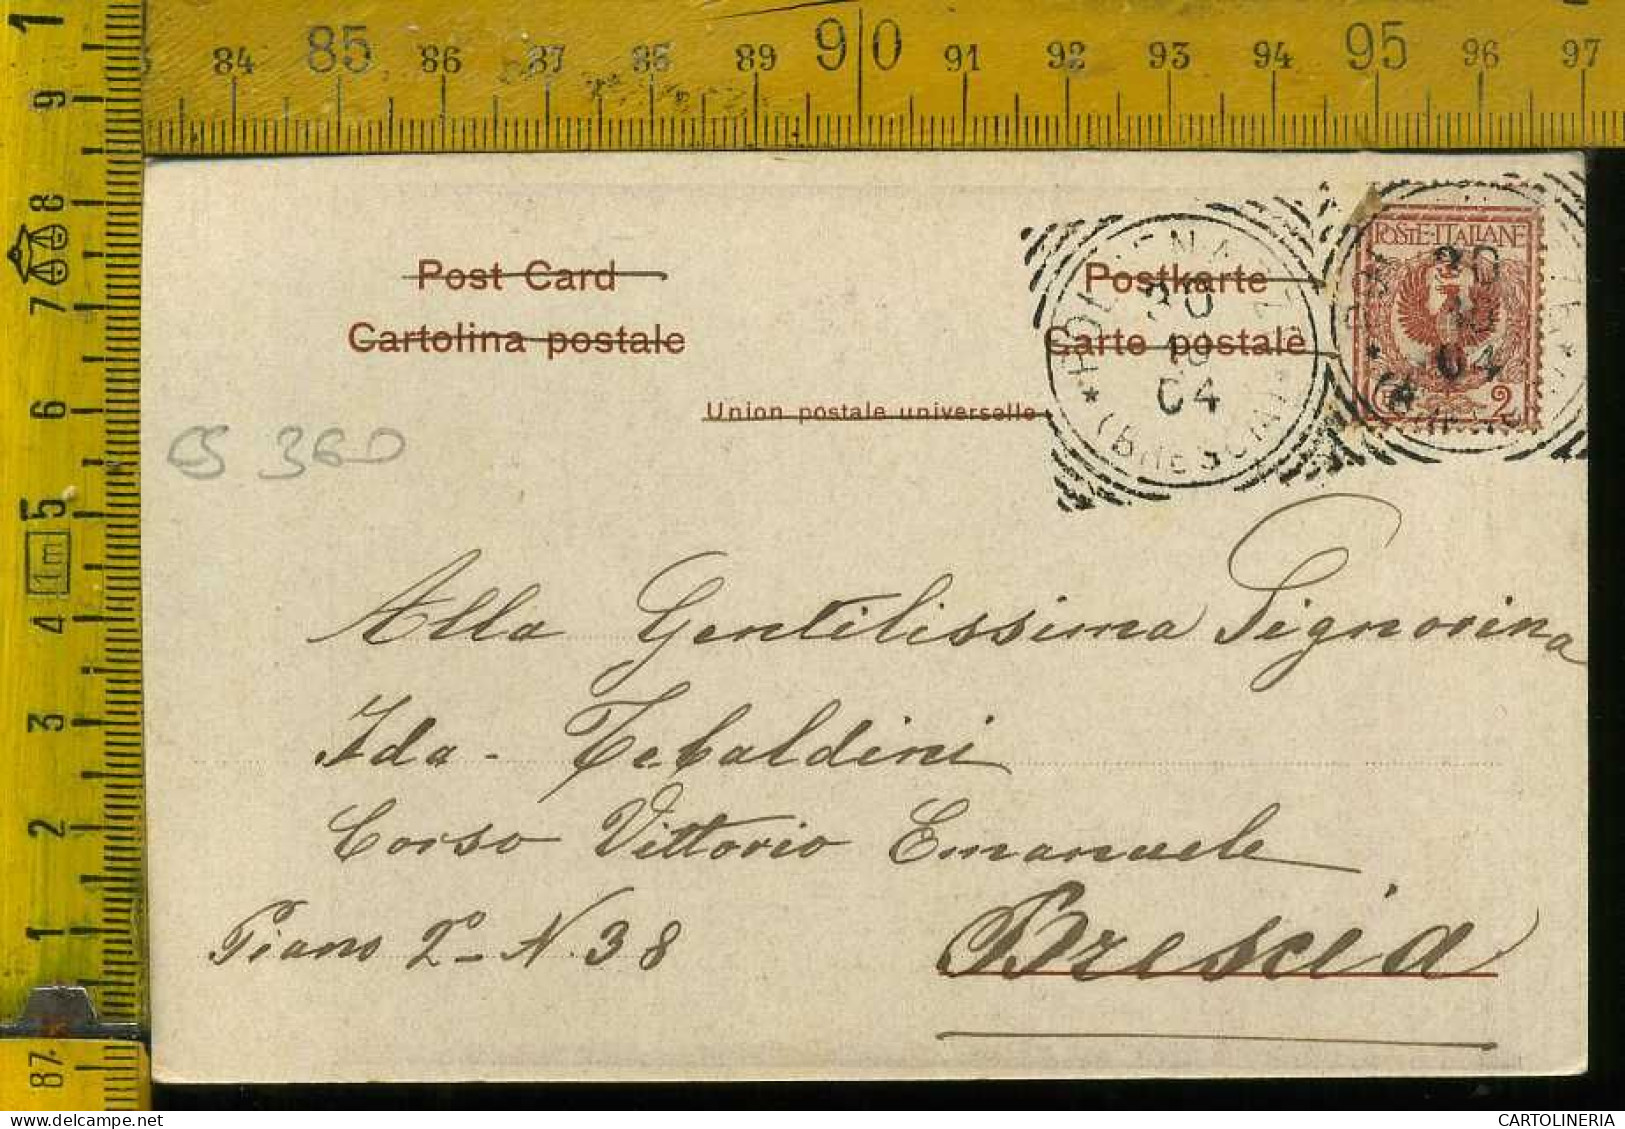 84 85 86 87 88 89 90 91 92 93 94 95 96 97
1
9
8
7
6
5
1m
4
3
2
1
87
Post Card
Postkarte
Cartolina postale
Carte postale
Union postale universelle
30
10
04
(BRESCIA)
POSTE·ITALIANE
30
10
04
2
CS 360
Alla Gentilissima Signorina
Ida - Tebaldini
Corso Vittorio Emanuele
Piano 2º - N. 38
Brescia
CARTOLINERIA